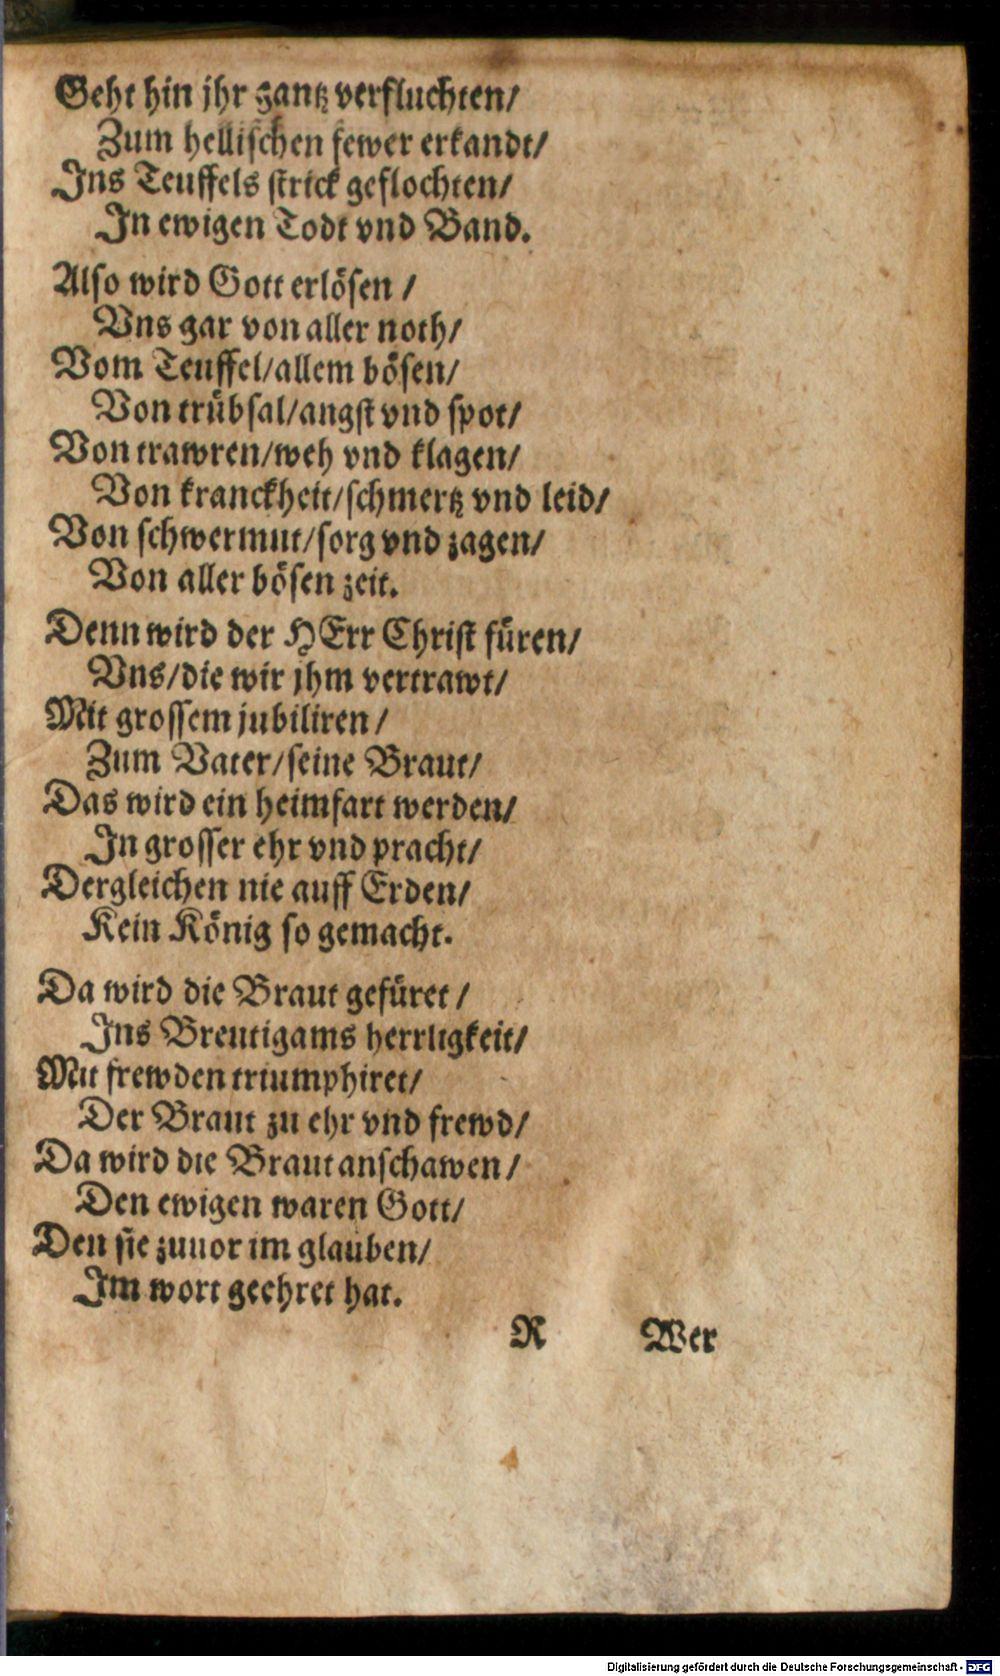 Geht hin jhr gantz verfluchten/
Zum hellischen fewer erkandt/
Ins Teuffels strick geflochten/
In ewigen Todt vnd Band.
Also wird Gott erlösen /
Vns gar von aller noth/
Vom Teuffel/allem bösen/
Von trübsal/angst vnd spot/
Von trawren/weh vnd klagen/
Von kranckheit/schmertz vnd leid/
Von schwermut/sorg vnd zagen/
Von aller bösen zeit.
Denn wird der HErr Christ füren/
Vns/die wir jhm vertrawt/
Mit grossem jubiliren/
Zum Vater/seine Braut/
Das wird ein heimfart werden/
In grosser ehr vnd pracht/
Dergleichen nie auff Erden/
Kein König so gemacht.
Da wird die Braut gefüret /
Ins Breutigams herrligkeit/
Mit frewden triumphiret/
Der Braut zu ehr vnd frewd/
Da wird die Braut anschawen/
Den ewigen waren Gott/
Den sie zuuor im glauben/
Im wort geehret hat.
R Wer
Digitalisierung gefördert durch die Deutsche Forschungsgemeinschaft - DFG